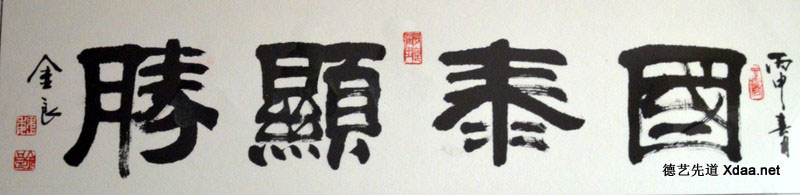 丙申
國泰顯勝
金良
德艺先道 Xdaa.net